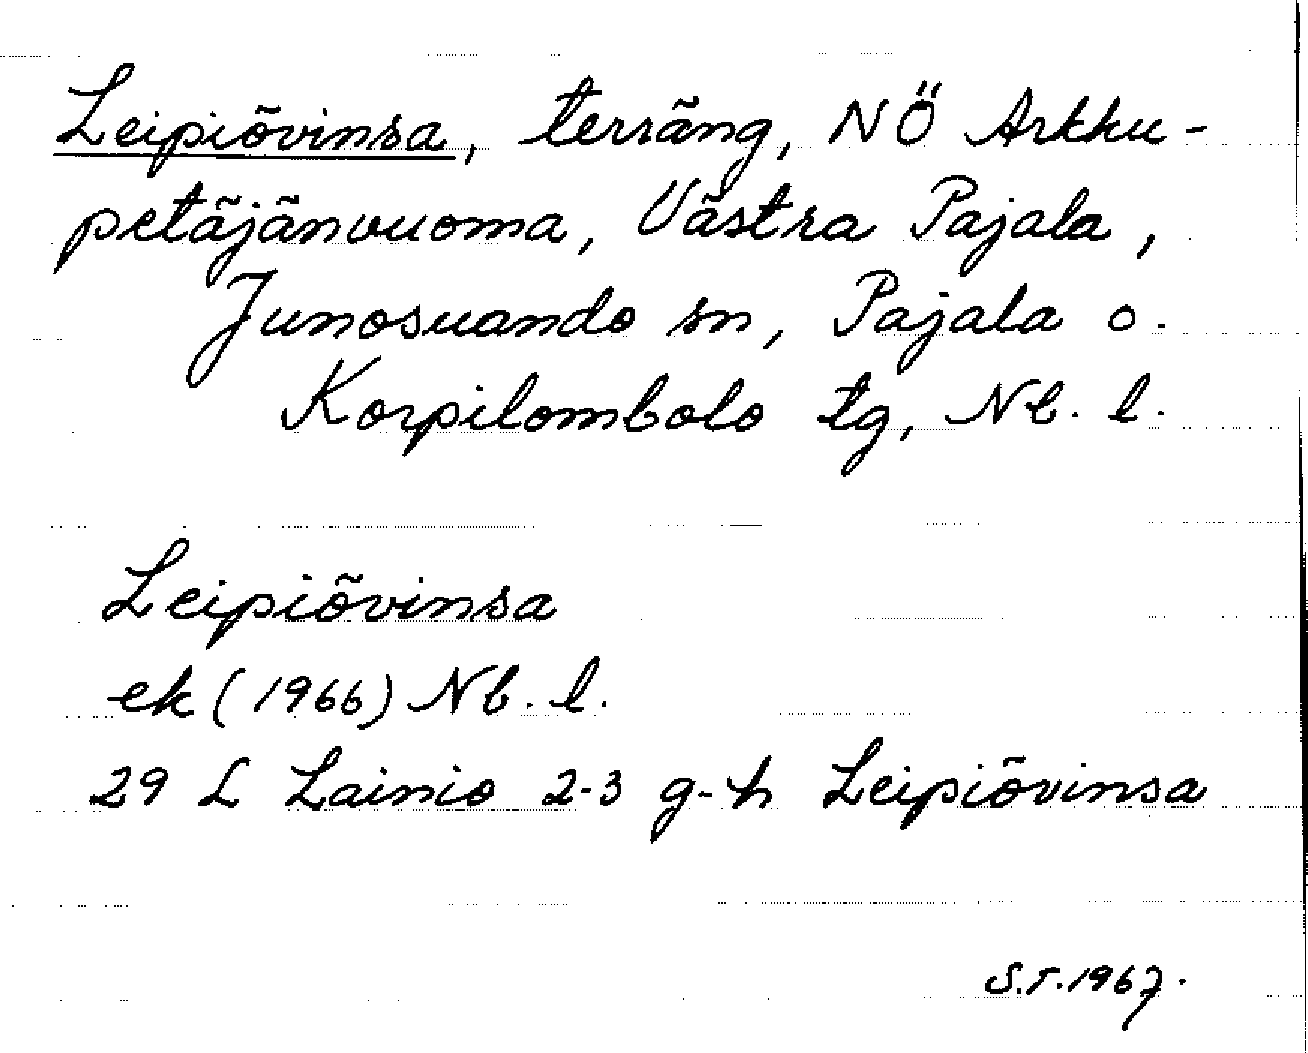 Leipiövinsa, terräng, NÖ Arkku-
petäjänvuoma, Västra Pajala,
Junosuando sn, Pajala o.
Korpilombolo tg, Nb. l.
Leipiövinsa
ek (1966) Nb. l.
29 L Lainio 2-3 g-h Leipiövinsa
S.T. 1967.